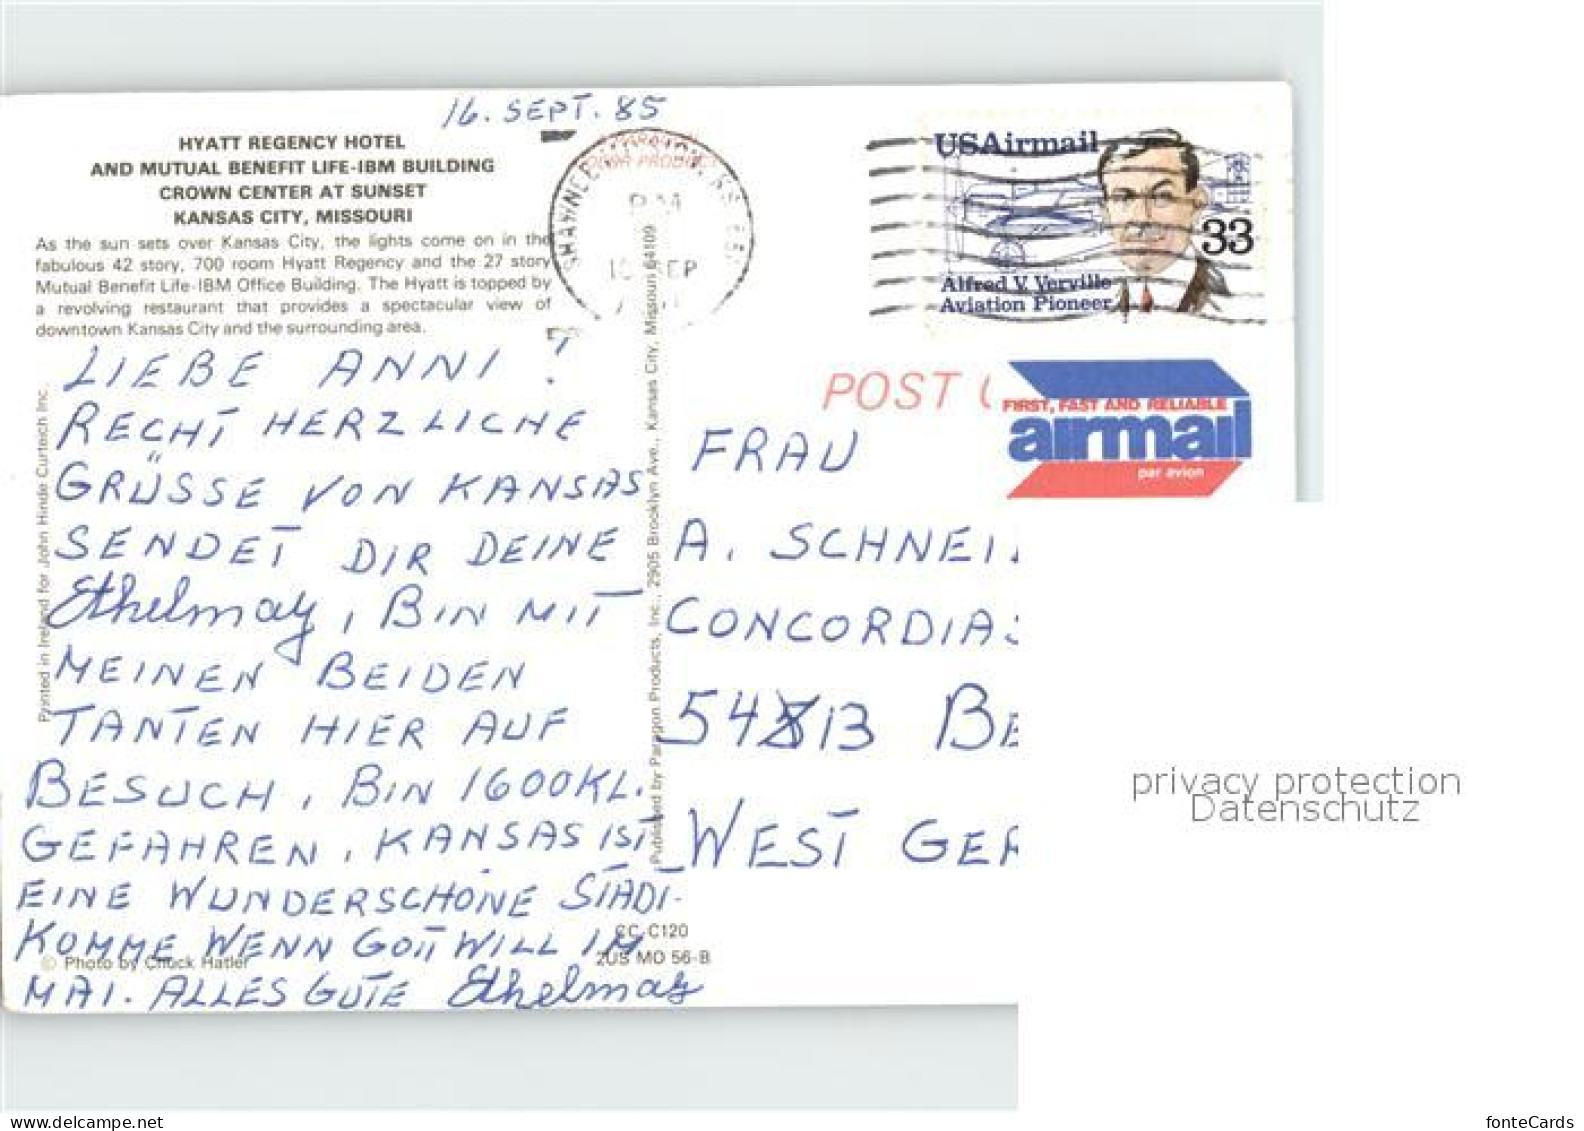 16. SEPT. 85
HYATT REGENCY HOTEL
AND MUTUAL BENEFIT LIFE-IBM BUILDING
CROWN CENTER AT SUNSET
KANSAS CITY, MISSOURI
As the sun sets over Kansas City, the lights come on in the
fabulous 42 story, 700 room Hyatt Regency and the 27 story
Mutual Benefit Life-IBM Office Building. The Hyatt is topped by
a revolving restaurant that provides a spectacular view of
downtown Kansas City and the surrounding area.
LIEBE ANNI!
RECHT HERZLICHE
GRÜSSE VON KANSAS
SENDET DIR DEINE
Ethelmay, BIN MIT
MEINEN BEIDEN
TANTEN HIER AUF
BESUCH, BIN 1600KL.
GEFAHREN, KANSAS IST
EINE WUNDERSCHONE STADT-
KOMME WENN GOTT WILL IM
MAI. ALLES GUTE Ethelmay
© Photo by Chuck Hatler
CC-C120
2US MO 56-B
Printed in Ireland for John Hinde Curteich Inc.
Published by Paragon Products, Inc., 2905 Brooklyn Ave., Kansas City, Missouri 64109
PM
SEP
USAirmail
33
Alfred V. Verville
Aviation Pioneer
POST
FIRST, FAST AND RELIABLE
airmail
par avion
FRAU
A. SCHNEI
CONCORDIAS
54813 BE
WEST GER
privacy protection
Datenschutz
www.delcampe.net
fonteCards